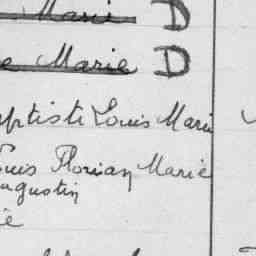 Marie D
e Marie D
ptiste Louis Marie
ouis Florian Marie
Augustin
ie